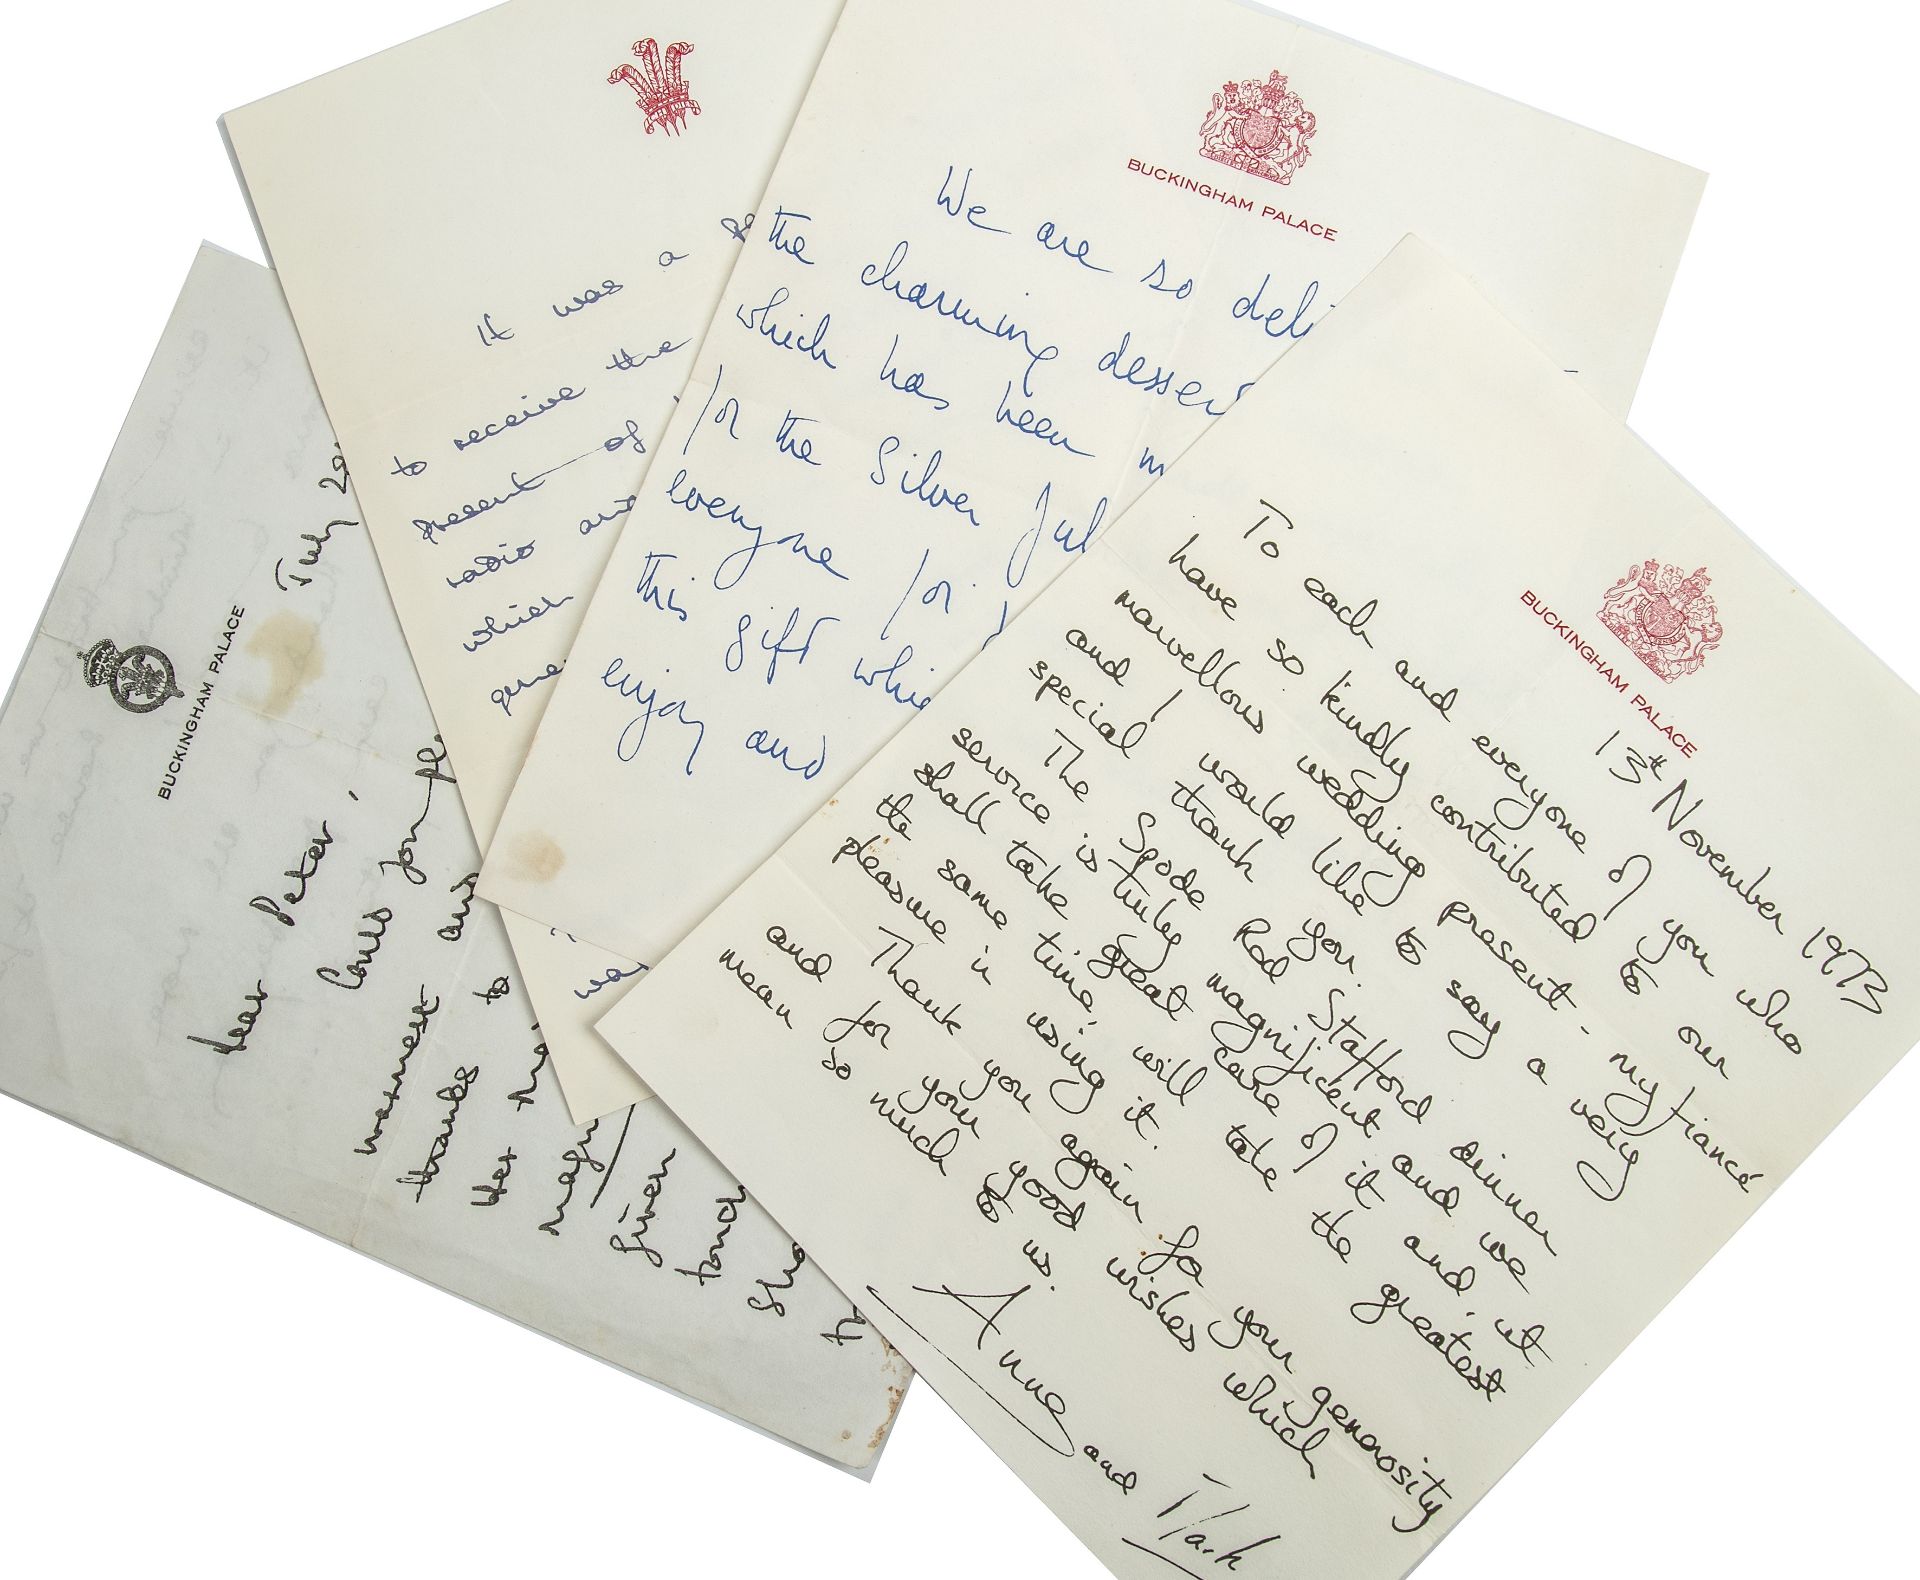 BUCKINGHAM PALACE
July
Dear Peter,
Could you
warmest and
thanks to
Her
given
It was a
to receive the
present of
radio and
which
BUCKINGHAM PALACE
We are so
the charming
which has been
for the Silver
everyone for
this gift
enjoy and
BUCKINGHAM PALACE
13th November 1973
To each and everyone of you who
have so kindly contributed to our
marvellous wedding present - my fiancé
and I would like to say a very
special thank you.
The Spode Red Stafford dinner
service is truly magnificent and we
shall take great care of it and, at
the same time, will take the greatest
pleasure in using it.
Thank you again for your generosity
and for your good wishes which
mean so much to us.
Anne and Mark